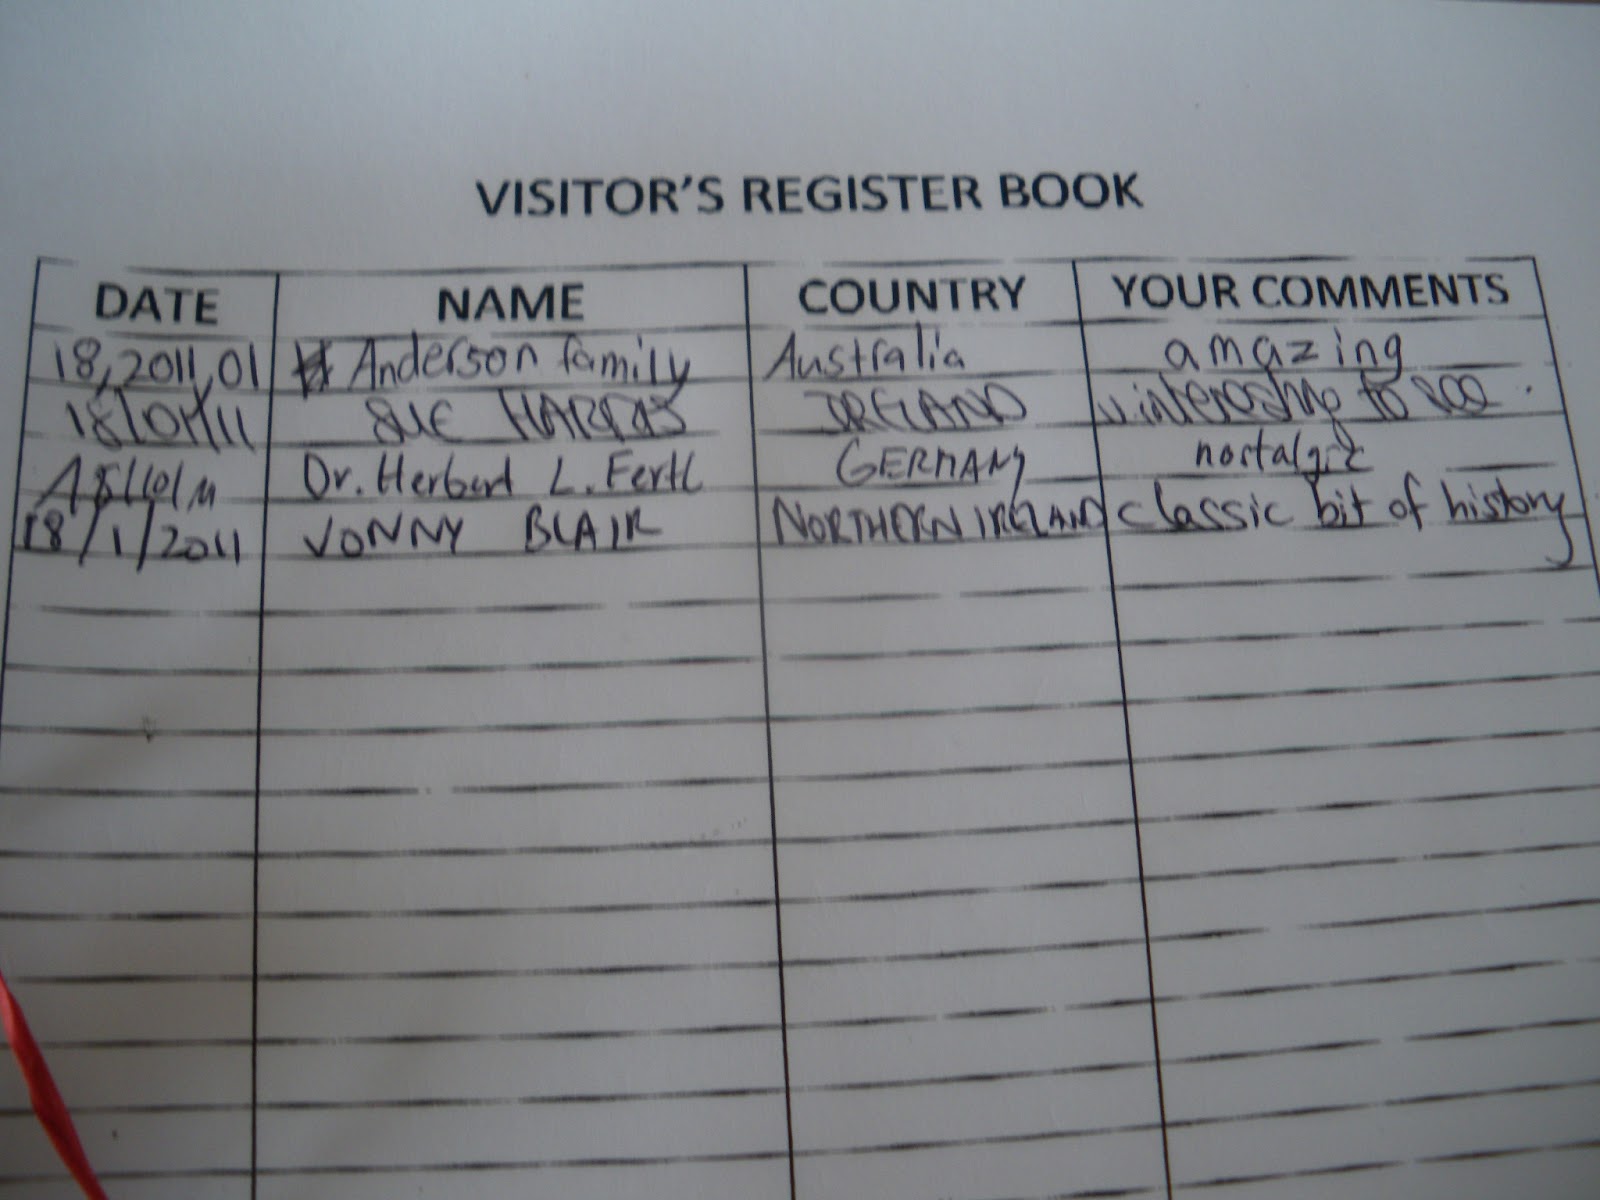 VISITOR'S REGISTER BOOK
DATE NAME COUNTRY YOUR COMMENTS
18,2011,01 Anderson family Australia amazing
18/01/11 SUE IRELAND v. interesting to see.
Dr. Herbert L. Fertl GERMANY nostalgic
18/1/2011 JONNY BLAIR NORTHERN IRELAND classic bit of history